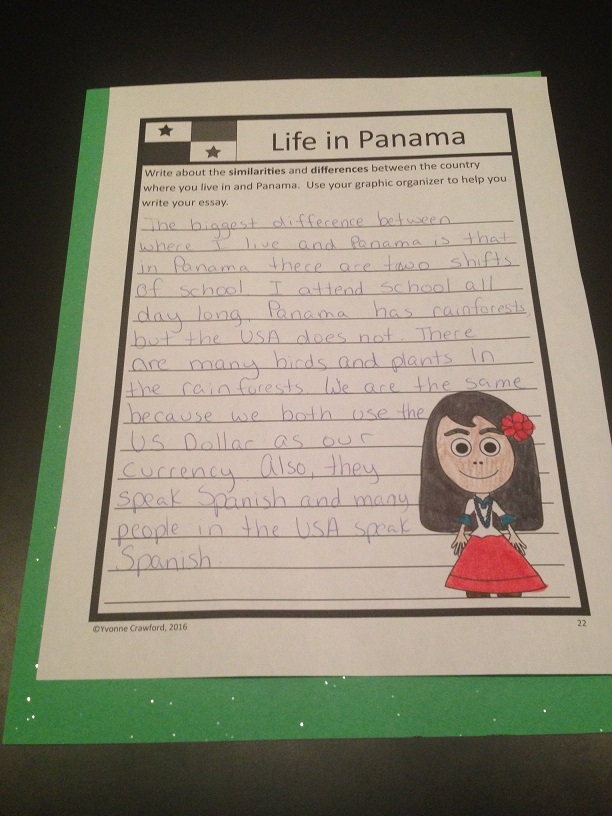 Life in Panama
Write about the similarities and differences between the country
where you live in and Panama. Use your graphic organizer to help you
write your essay.
The biggest difference between
where I live and Panama is that
in Panama there are two shifts
of school. I attend school all
day long. Panama has rainforests,
but the USA does not. There
are many birds and plants in
the rainforests. We are the same
because we both use the
US Dollar as our
currency. Also, they
speak Spanish and many
people in the USA speak
Spanish.
©Yvonne Crawford, 2016
22